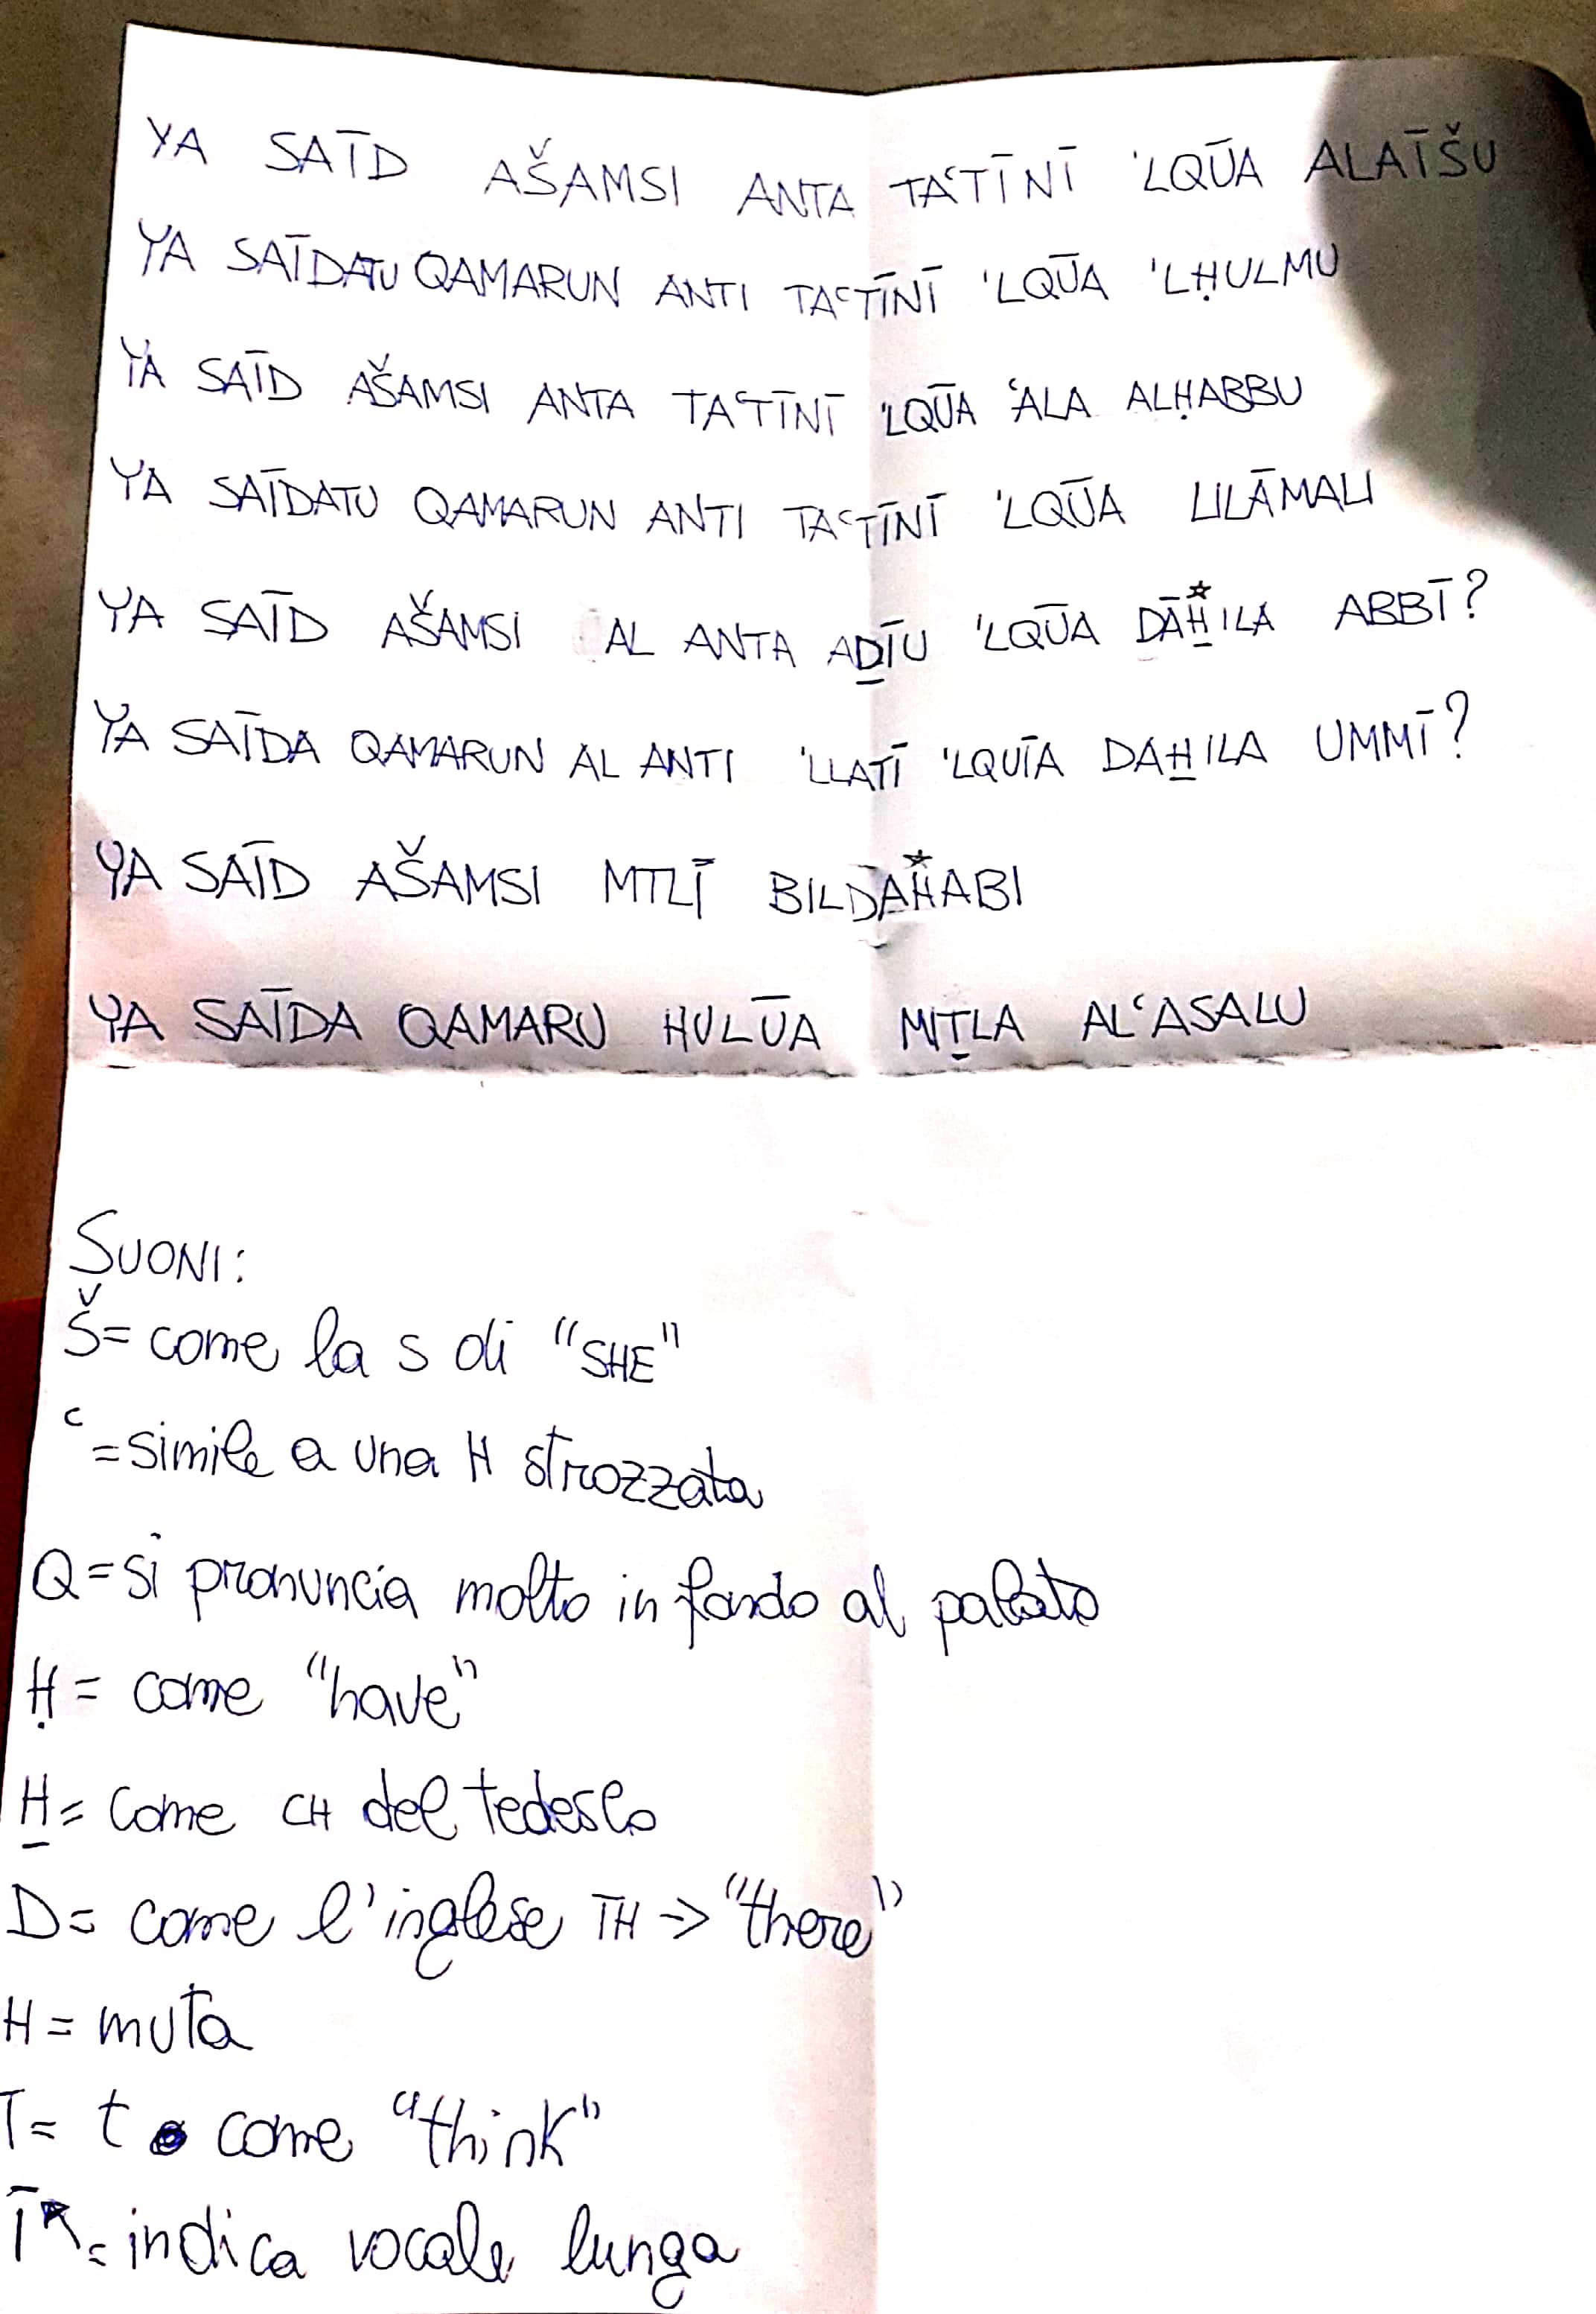 YA SAĪD AŠAMSI ANTA TAʿTĪNĪ 'LQŪA ALAĪŠU
YA SAĪDATU QAMARUN ANTI TAʿTĪNĪ 'LQŪA 'LḤULMU
YA SAĪD AŠAMSI ANTA TAʿTĪNĪ 'LQŪA ʿALA ALḤABBU
YA SAĪDATU QAMARUN ANTI TAʿTĪNĪ 'LQŪA LILĀMALI
YA SAĪD AŠAMSI AL ANTA AḎĪU 'LQŪA DĀH̱*ILA ABBĪ?
YA SAĪDA QAMARUN AL ANTI 'LLATĪ 'LQUĪA DAH̱ILA UMMĪ?
YA SAĪD AŠAMSI MTLĪ BILDAH*ABI
YA SAĪDA QAMARU HULŪA MIṮLA ALʿASALU
SUONI:
Š= come la s di "SHE"
ʿ =simile a una H strozzata
Q=si pronuncia molto in fondo al palato
Ḥ= come "have"
H̱= come CH del tedesco
D= come l'inglese TH → "there"
H= muta
T= t come "think"
Ī= indica vocale lunga